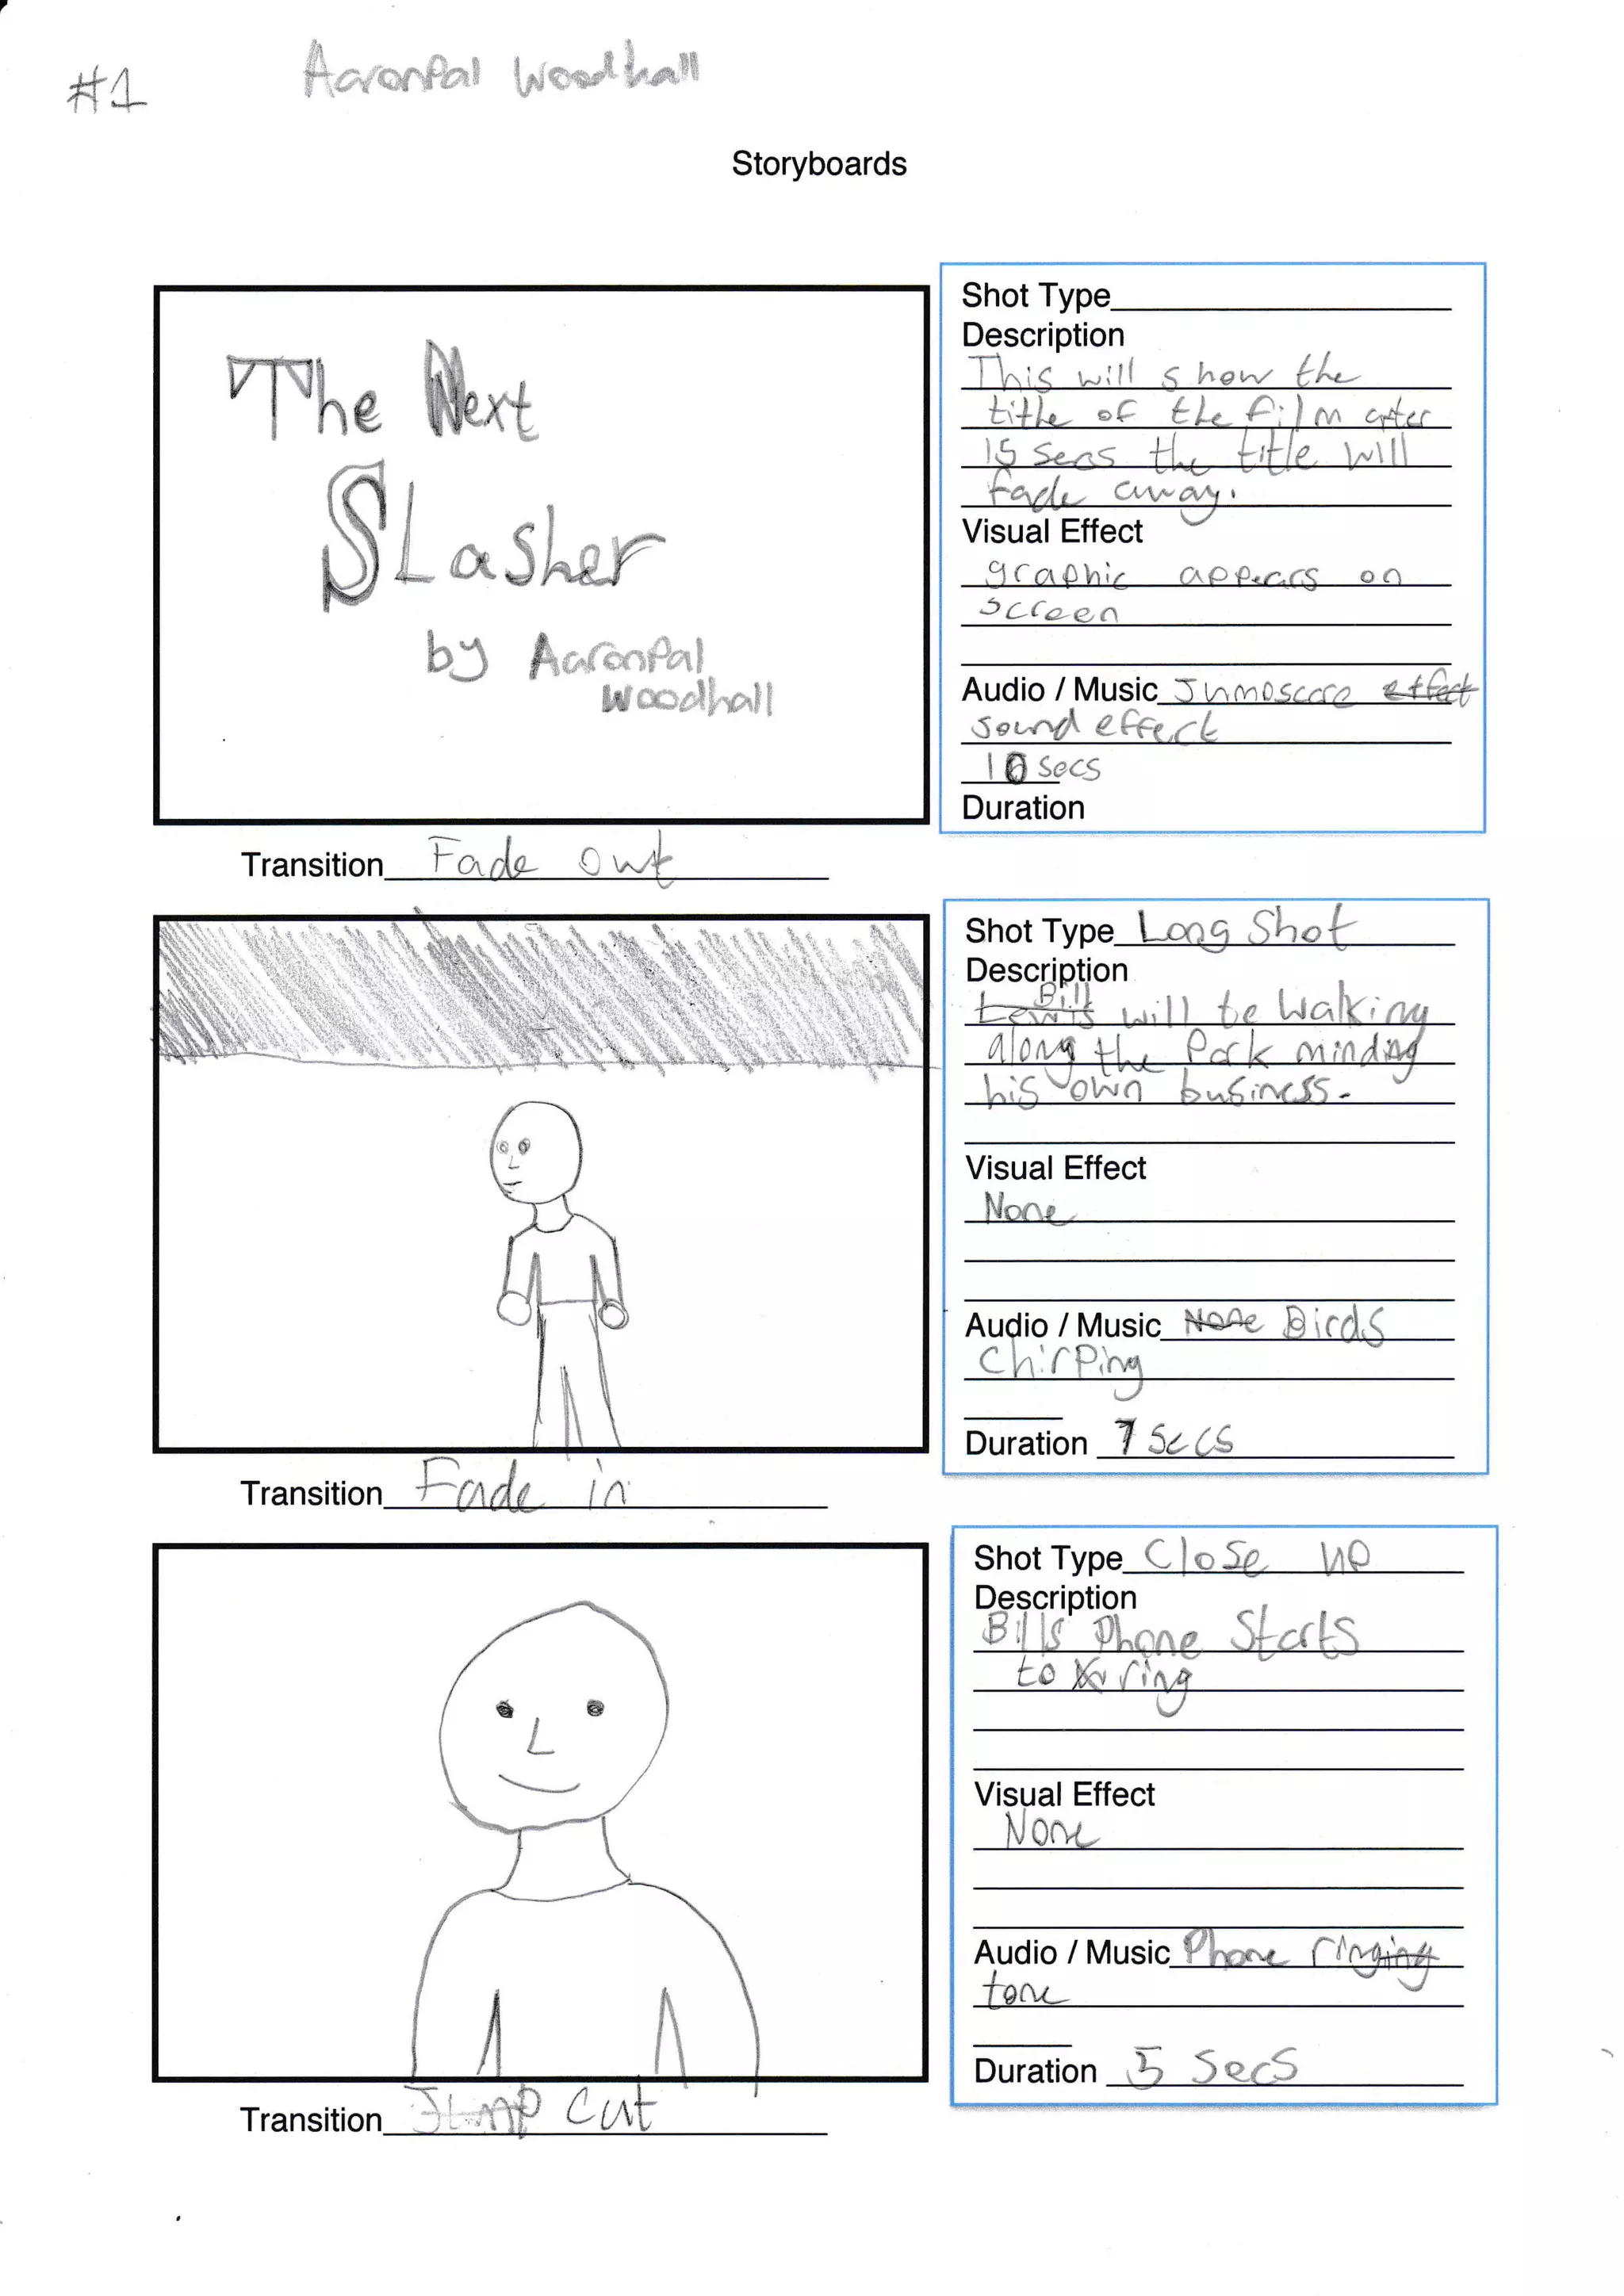 #1
AaronPal Woodhall
Storyboards
The Next
SLasher
by AaronPal
Woodhall
Transition Fade out
Shot Type
Description
This will show the
title of the film after
15 secs the title will
fade away.
Visual Effect
graphic appears on
screen
Audio / Music Jumpscare effect
sound effect
10 secs
Duration
Transition Fade in
Shot Type Long Shot
Description
Bill
Lewis will be walking
along the Park minding
his own business.
Visual Effect
None
Audio / Music None Birds
Chirping
Duration 7 Secs
Transition Jump Cut
Shot Type Close up
Description
Bills Phone Starts
to ring
Visual Effect
None
Audio / Music Phone ringing
tone
Duration 5 Secs